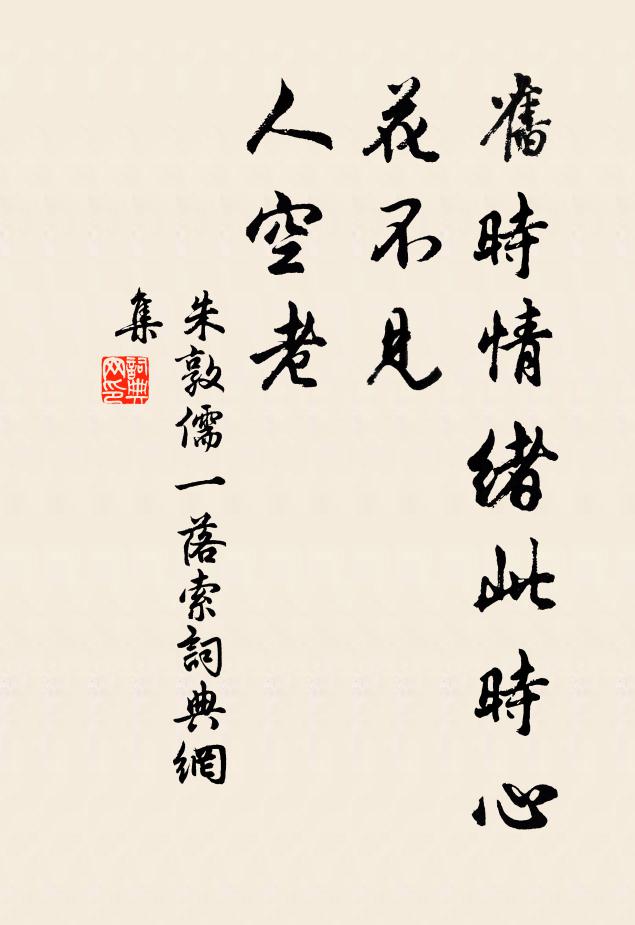 舊時情緒此時心
花不見
人空老
朱敦儒一落索詞典網
集
詞典
网印